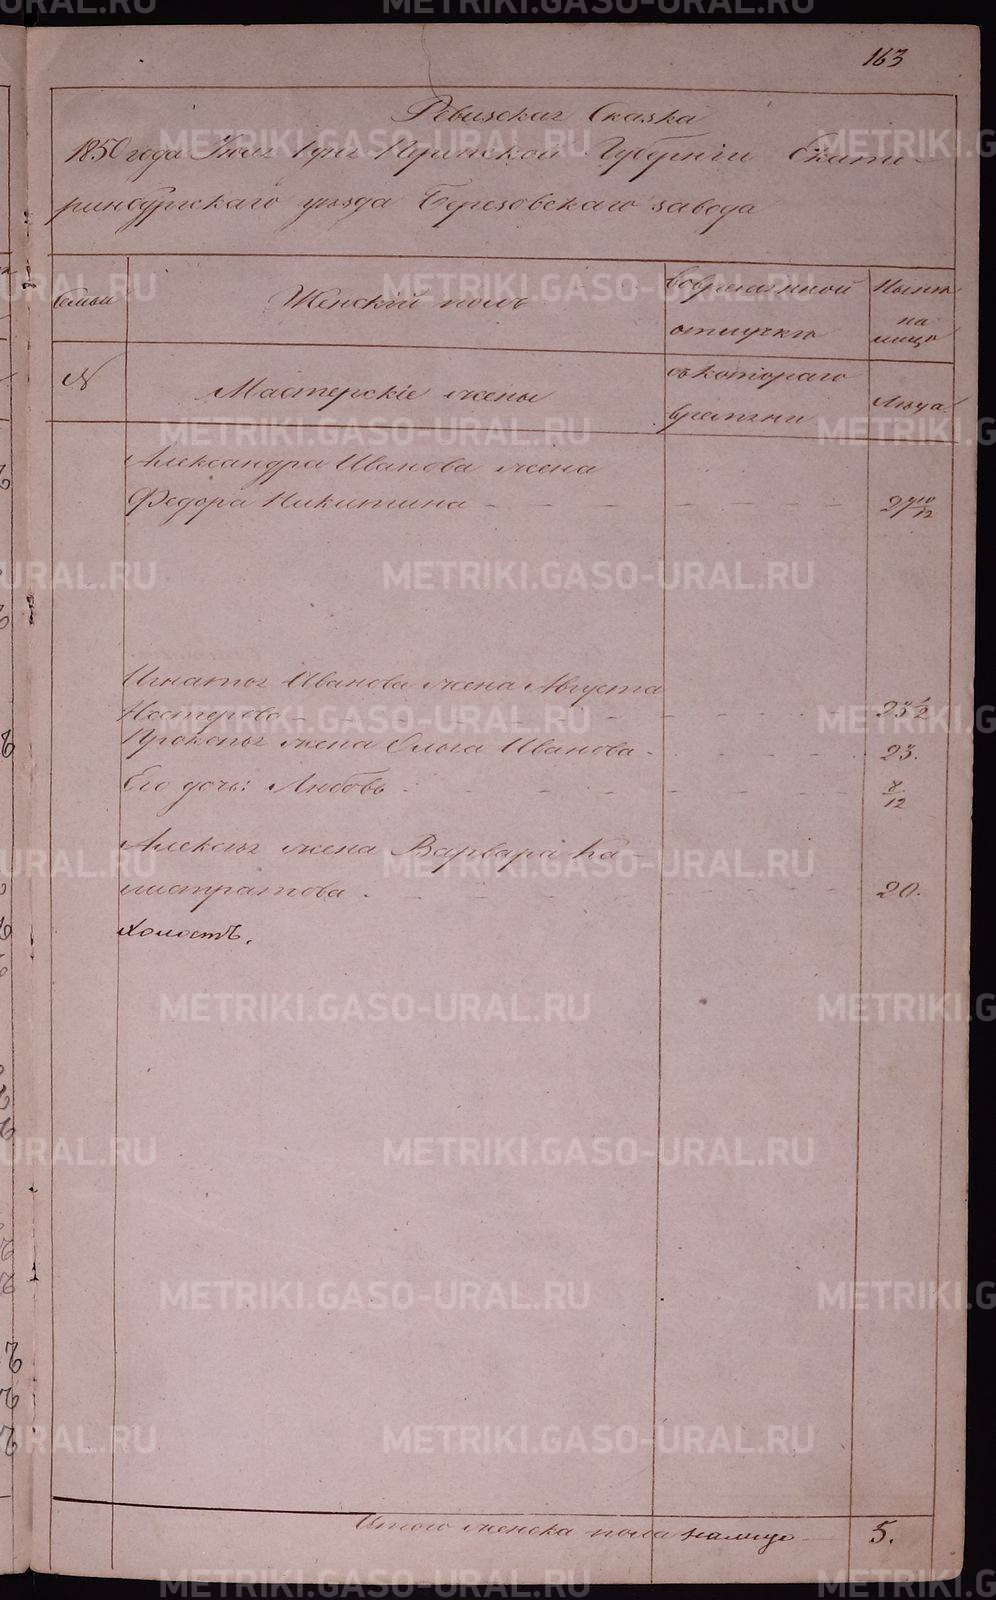 163
Ревизская Сказка
1850 года Июля 1 дня Пермской Губернiи Екате-
ринбургскаго уѣзда Березовскаго завода
Семьи
Женскiй полъ
Во временной
отлучкѣ
Нынѣ
на
лицо
N
Мастерскiе жены
съ котораго
времяни
Лѣта
Александра Иванова жена
Федора Никитина 27 10/12
Игнатья Иванова жена Августа
Нестерова 23 1/2
Прокопья жена Ольга Иванова 23.
Его дочь: Любовь 8/12
Алексѣя жена Варвара Ка-
листратова 20.
Холостъ.
Итого женска пола налицо 5.
METRIKI.GASO-URAL.RU